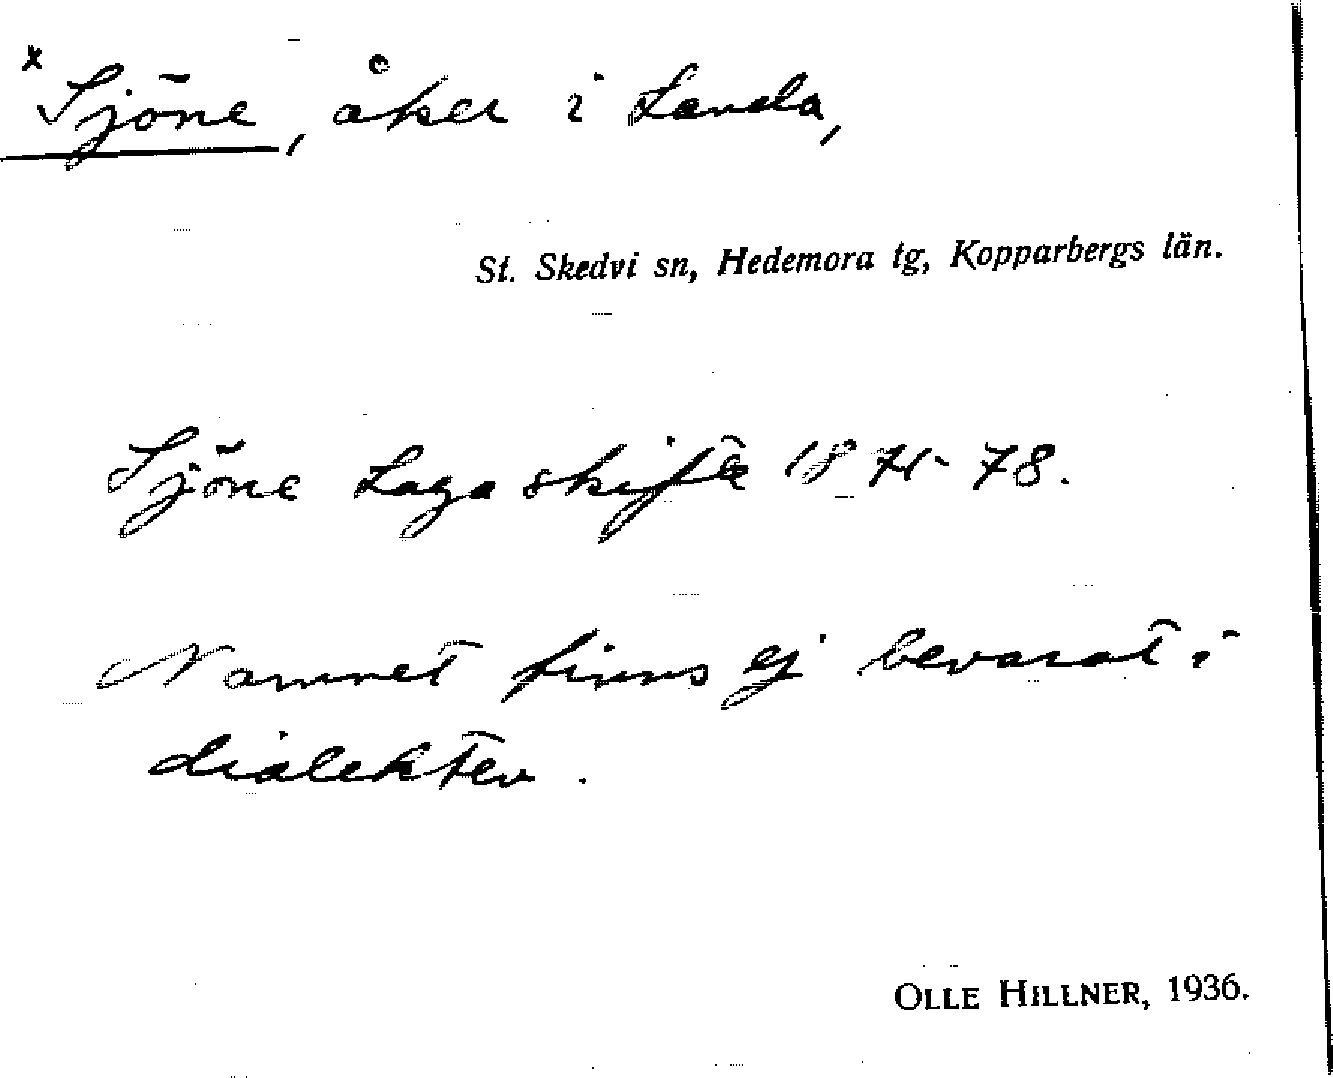 *Sjöne, åker i Landa,
St. Skedvi sn, Hedemora tg, Kopparbergs län.
Sjöne Laga skifte 1871-78.
Namnet finns ej bevarat i
dialekten.
OLLE HILLNER, 1936.